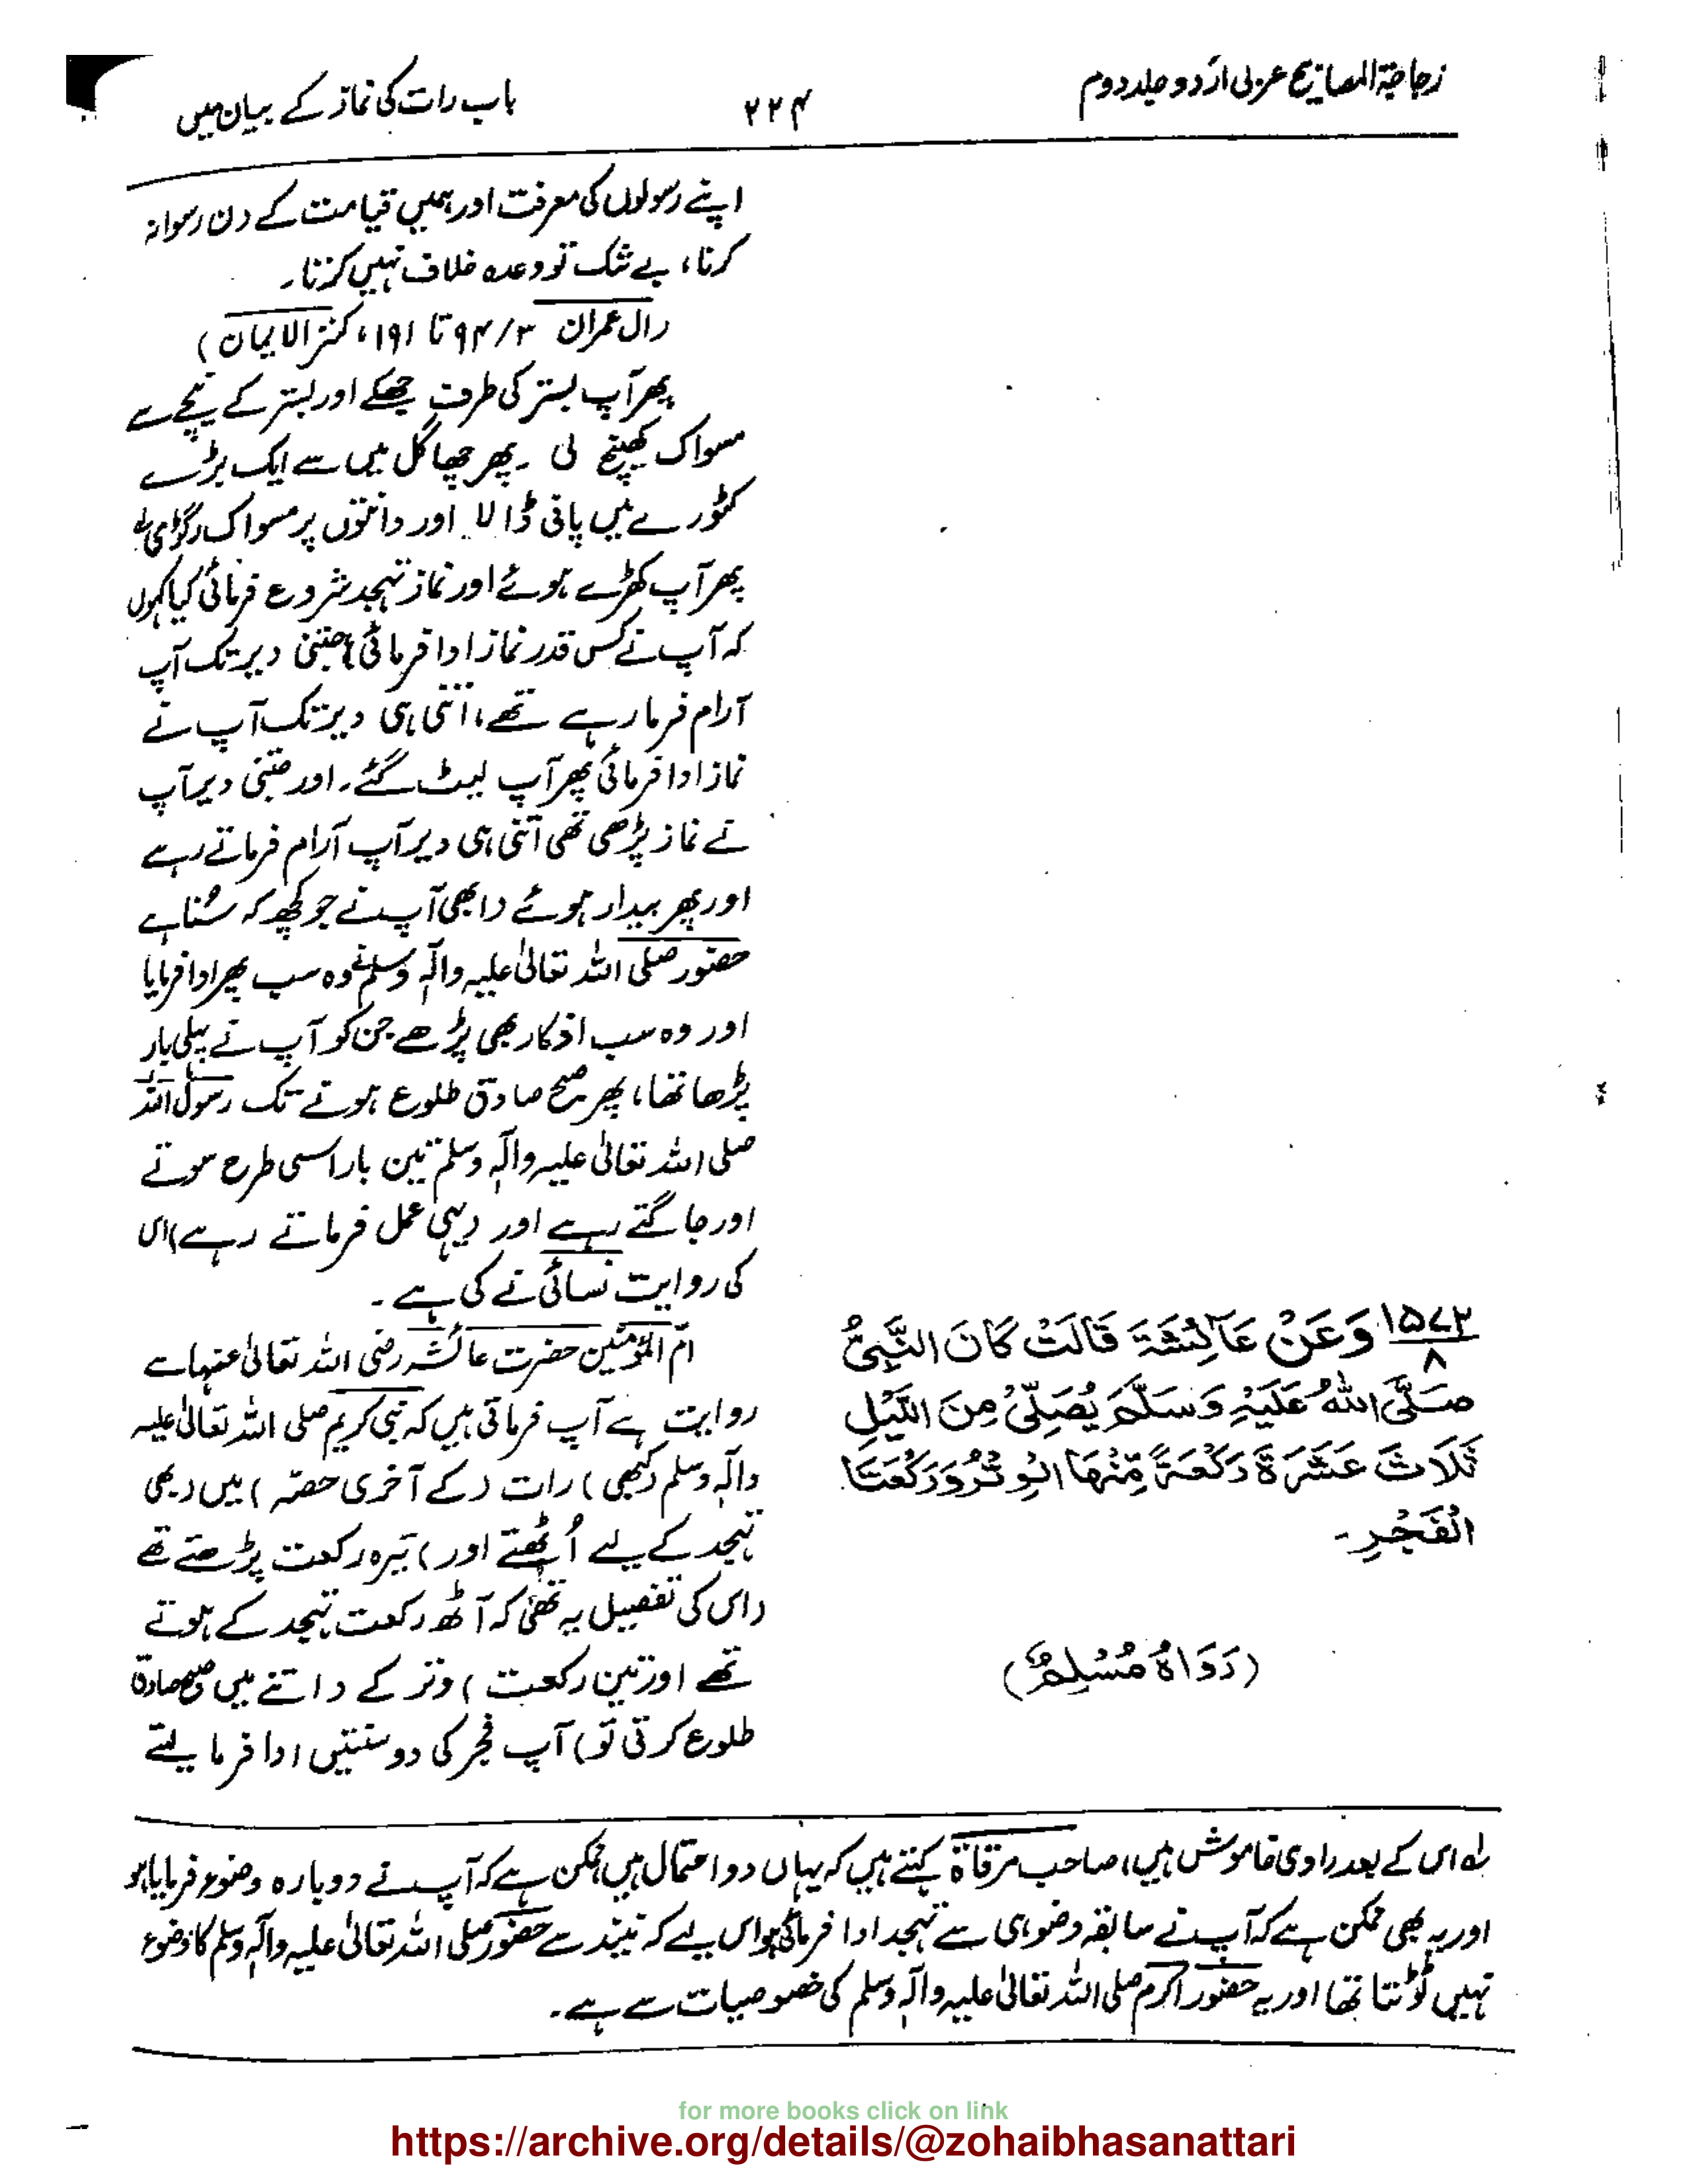 زجاجۃ المصابیح عربی اُردو جلد دوم
۲۲۴
باب رات کی نماز کے بیان میں
اپنے رسولوں کی معرفت اور ہمیں قیامت کے دن رسوا نہ
کرنا، بے شک تو وعدہ خلاف نہیں کرتا۔
(آل عمران ۳/۹۴ تا ۱۹۱، کنز الایمان)
پھر آپ بستر کی طرف جھکے اور بستر کے نیچے سے
مسواک کھینچ لی ۔ پھر چھاگل میں سے ایک بڑے
کٹورے میں پانی ڈالا اور دانتوں پر مسواک رگڑی لہ
پھر آپ کھڑے ہوئے اور نماز تہجد شروع فرمائی کیا کہوں
کہ آپ نے کس قدر نماز ادا فرمائی) جتنی دیر تک آپ
آرام فرما رہے تھے، اتنی ہی دیر تک آپ نے
نماز ادا فرمائی پھر آپ لیٹ گئے۔ اور جتنی دیر آپ
نے نماز پڑھی تھی اتنی ہی دیر آپ آرام فرماتے رہے
اور پھر بیدار ہوئے (ابھی آپ نے جو کچھ کہ سُنا ہے
حضور صلی اللہ تعالیٰ علیہ واٰلہٖ وسلم نے وہ سب پھر ادا فرمایا
اور وہ سب اذکار بھی پڑھے جن کو آپ نے پہلی بار
پڑھا تھا، پھر صبح صادق طلوع ہونے تک رسول اللہ
صلی اللہ تعالیٰ علیہ واٰلہٖ وسلم تین بار اسی طرح سوتے
اور جاگتے رہے اور وہی عمل فرماتے رہے) اس
کی روایت نسائی نے کی ہے ۔
۱۵۷۲/۸ وَعَنْ عَآئِشَةَ قَالَتْ كَانَ النَّبِيُّ
صَلَّى اللّٰهُ عَلَيْهِ وَسَلَّمَ يُصَلِّيْ مِنَ اللَّيْلِ
ثَلَاثَ عَشَرَةَ رَكْعَةً مِّنْهَا الْوِتْرُ وَرَكْعَتَا
الْفَجْرِ ۔
(رَوَاهُ مُسْلِمٌ)
امّ المؤمنین حضرت عائشہ رضی اللہ تعالیٰ عنہا سے
روایت ہے آپ فرماتی ہیں کہ نبی کریم صلی اللہ تعالیٰ علیہ
واٰلہٖ وسلم (کبھی) رات (کے آخری حصّہ) میں (بھی
تہجد کے لیے اُٹھتے اور) تیرہ رکعت پڑھتے تھے
(اس کی تفصیل یہ تھی کہ آٹھ رکعت تہجد کے ہوتے
تھے اور تین رکعت) وتر کے (اتنے میں صبح صادق
طلوع کرتی تو) آپ فجر کی دو سنتیں ادا فرما لیتے
لہ اس کے بعد راوی خاموش ہیں، صاحب مرقاۃ کہتے ہیں کہ یہاں دو احتمال ہیں ممکن ہے کہ آپ نے دوبارہ وضوء فرمایا ہو
اور یہ بھی ممکن ہے کہ آپ نے سابقہ وضو ہی سے تہجد ادا فرمائی ہو اس لیے کہ نیند سے حضور صلی اللہ تعالیٰ علیہ واٰلہٖ وسلم کا وضوء
نہیں ٹوٹتا تھا اور یہ حضور اکرم صلی اللہ تعالیٰ علیہ واٰلہٖ وسلم کی خصوصیات سے ہے۔
for more books click on link
https://archive.org/details/@zohaibhasanattari